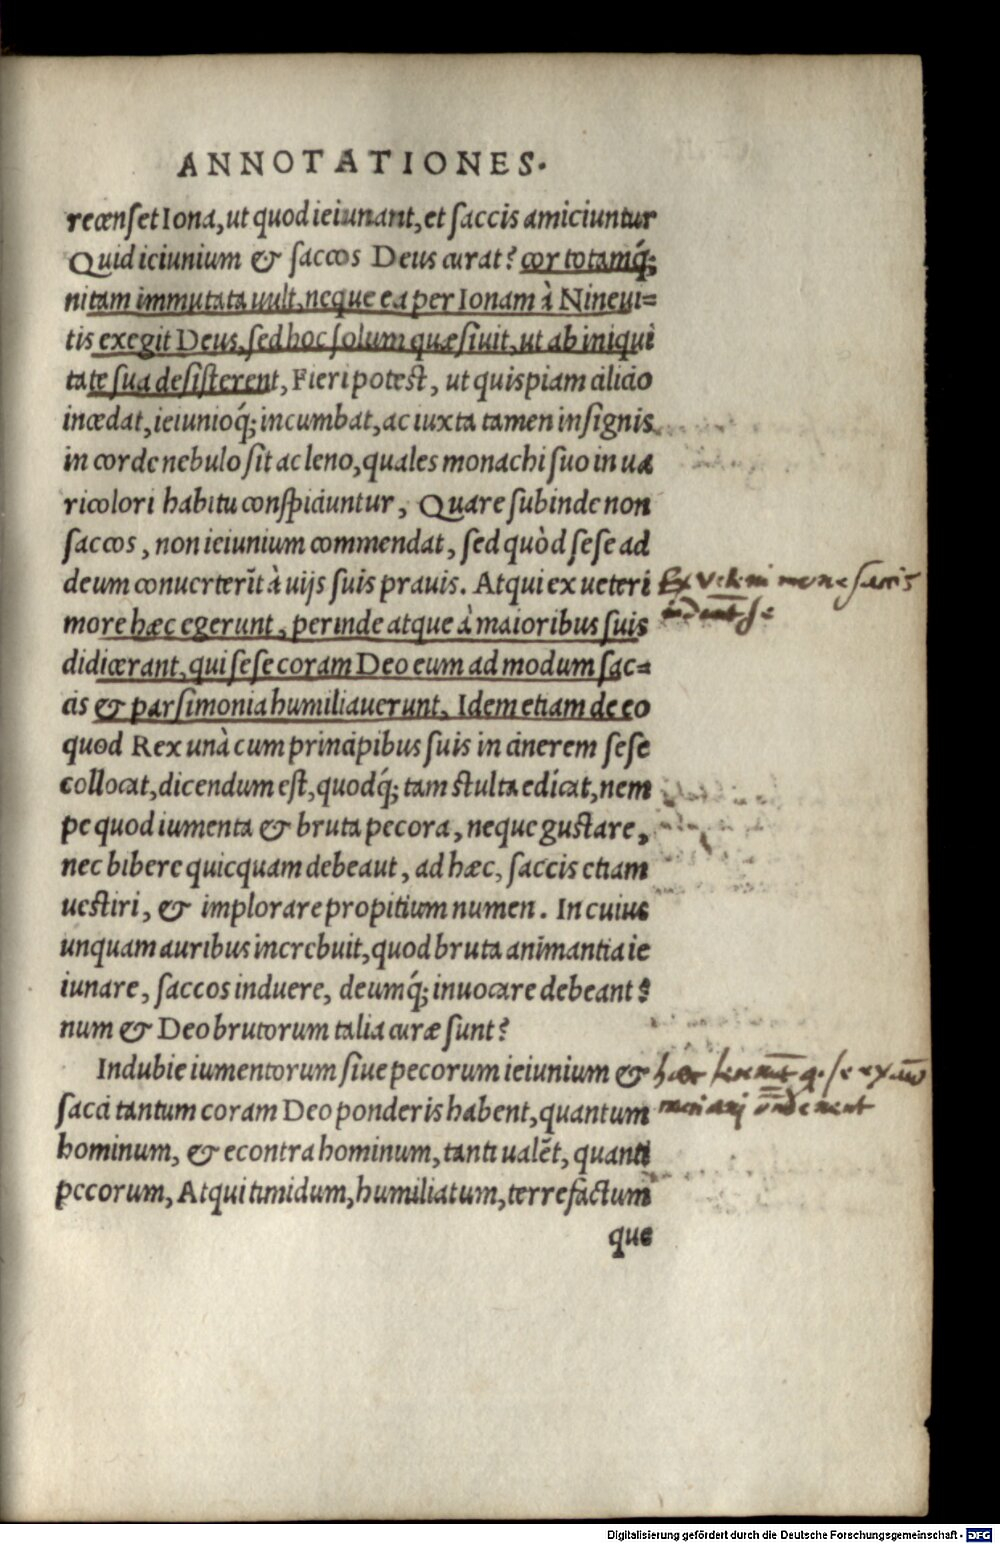 ANNOTATIONES.
recenset Iona, ut quod ieiunant, et saccis amiciuntur
Quid iciunium & saccos Deus curat? cor totamq́;
nitam immutata uult, neque ea per Ionam à Nineui=
tis exegit Deus, sed hoc solum quæsiuit, ut ab iniqui
tate sua desisterent, Fieri potest, ut quispiam cilicio
incedat, ieiunioq́; incumbat, ac iuxta tamen insignis
in corde nebulo sit ac leno, quales monachi suo in ua
ricolori habitu conspiciuntur, Quare subinde non
saccos, non ieiunium commendat, sed quòd sese ad
deum conuerterĩt à uijs suis prauis. Atqui ex ueteri
more hæc egerunt, perinde atque à maioribus suis
didicerant, qui sese coram Deo eum ad modum sac=
cis & parsimonia humiliauerunt, Idem etiam de eo
quod Rex unà cum principibus suis in cinerem sese
collocat, dicendum est, quodq́; tam stulta edicat, nem
pe quod iumenta & bruta pecora, neque gustare,
nec bibere quicquam debeaut, ad hæc, saccis etiam
uestiri, & implorare propitium numen. In cuius
unquam auribus increbuit, quod bruta animantia ie
iunare, saccos induere, deumq́; inuocare debeant?
num & Deo brutorum talia curæ sunt?
Indubie iumentorum siue pecorum ieiunium &
sacci tantum coram Deo ponderis habent, quantum
hominum, & econtra hominum, tanti ualẽt, quanti
pecorum, Atqui timidum, humiliatum, terrefactum
que
Ex veteri more saccis
se
Digitalisierung gefördert durch die Deutsche Forschungsgemeinschaft - DFG